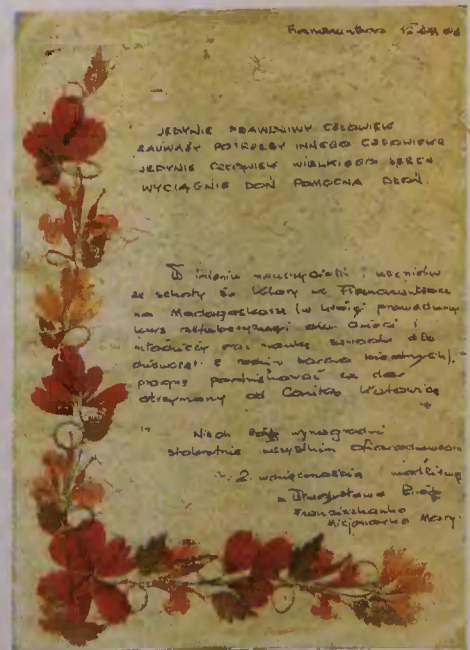 JEDYNIE PRAWDZIWY CZŁOWIEK
ZAUWAŻY POTRZEBY INNEGO CZŁOWIEKA
JEDYNIE CZŁOWIEK WIELKIEGO SERCA
WYCIĄGNIE DOŃ POMOCNĄ DŁOŃ.
W imieniu nauczycieli i uczniów
ze szkoły św Klary we
na Madagaskarze (w której prowadzimy
kurs alfabetyzacji dla dzieci i
młodzieży oraz naukę zawodu dla
dziewcząt z rodzin bardzo biednych),
pragnę podziękować za dar
otrzymany od Caritas Katowice
Niech Bóg wynagrodzi
stokrotnie wszystkim ofiarodawcom
Z wdzięcznością i modlitwą
s.
Franciszkanka
Misjonarka Maryi